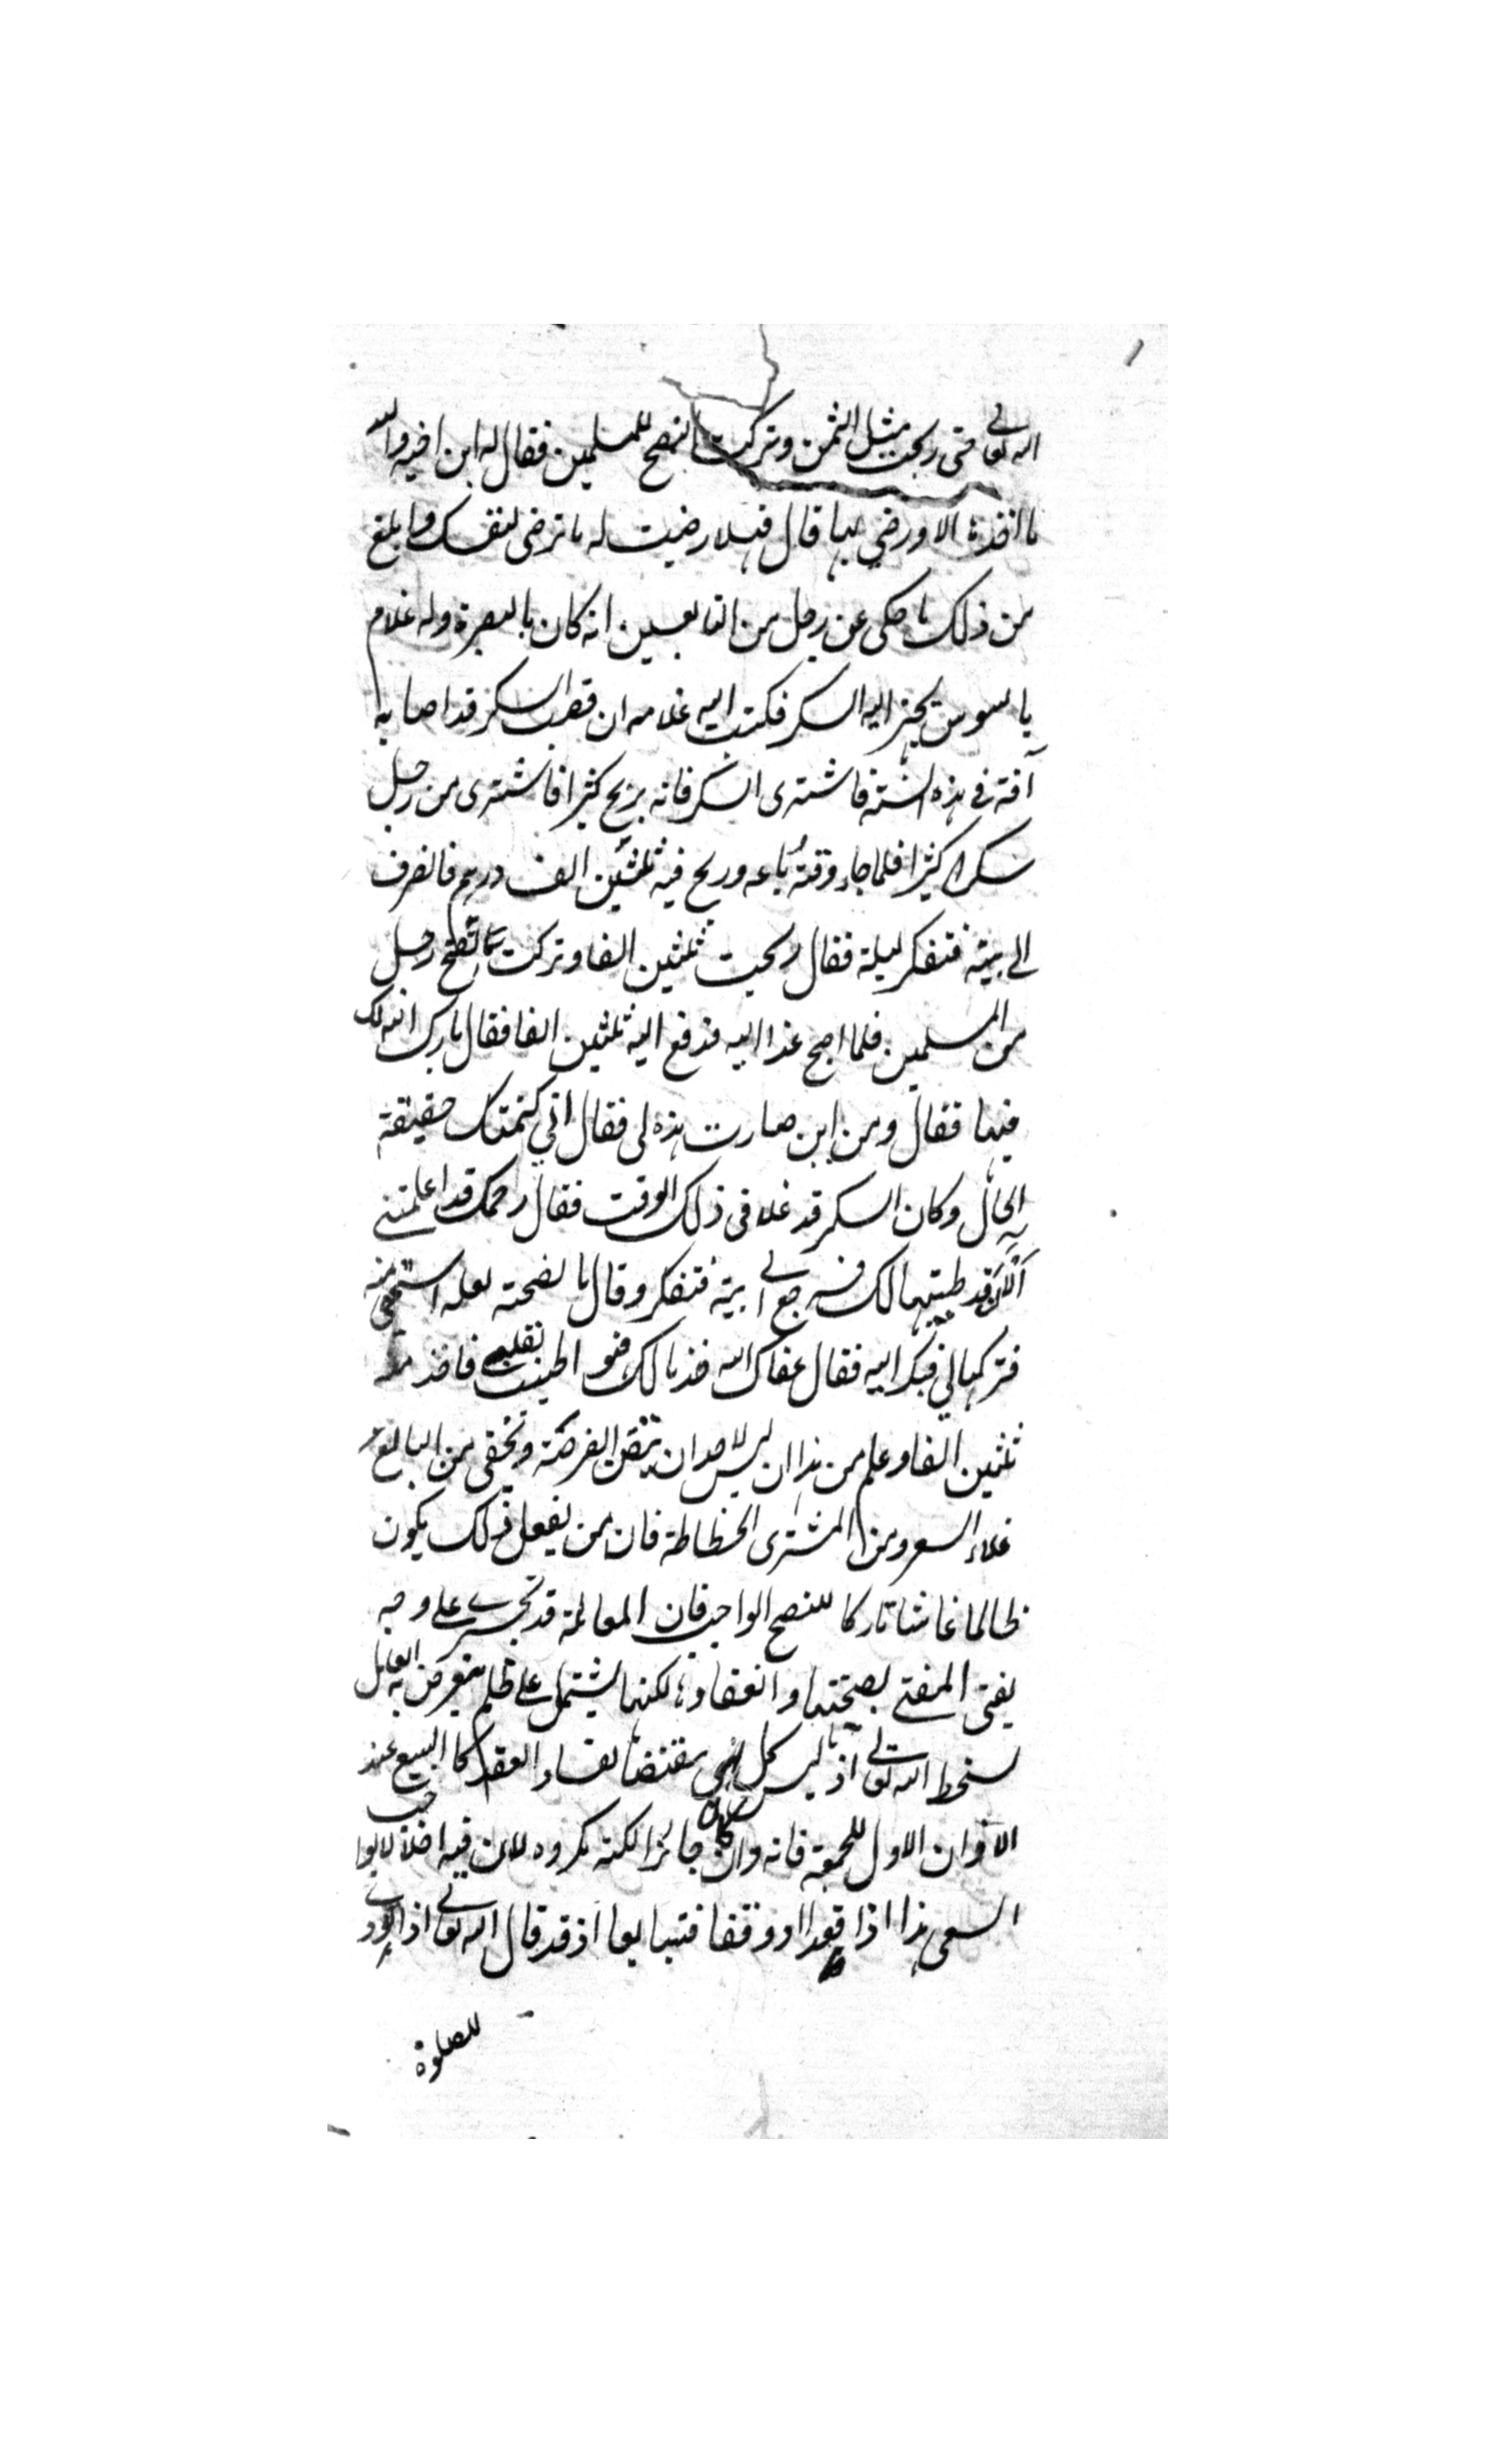 الله تعالى حتى ربحت مثل الثمن وتركت النصح للمسلمين فقال له ابن اخيه والله
ما اخذها الا ورضي بها قال فهلا رضيت له ما ترضى لنفسك وابلغ
من ذلك ما حكى عن رجل من التابعين انه كان بالبصرة وله غلام
بالسوس يجهز اليه السكر فكتب اليه غلامه ان قصب السكر قد اصابه
آفة في هذه السنة فاشترى السكر فانه يربح كثيرا فاشترى من رجل
سكرا كثيرا فلما جاء وقته باعه وربح فيه ثلثين الف درهم فانصرف
الى بيته فتفكر ليلة فقال ربحت ثلثين الفا وتركت نصح رجل
من المسلمين فلما اصبح غدا اليه فدفع اليه ثلثين الفا فقال بارك الله لك
فيها فقال ومن اين صارت هذه لى فقال اني كتمتك حقيقة
الحال وكان السكر قد غلا في ذلك الوقت فقال رحمك قد اعلمتنى
به الآن قد طيبتها لك فرجع الى بيته فتفكر وقال ما نصحته لعله استحيى منه
فتركها لي فبكر اليه فقال عفاك الله خذ مالك فهو اطيب لقلبى فاخذ منه
ثلثين الفا وعلم من هذا ان ليس لاحد ان ينتقض الفرصة ويخفى من البايع
غلاء السعر ومن المشترى انحطاطه فان من يفعل ذلك يكون
ظالما غاشا تاركا للنصح الواجب فان المعاملة قد تجرى على وجه
يفتى المفتى بصحتها وانعقادها لكنها يشتمل على ظلم يتعرض به العامل
لسخط الله تعالى اذ ليس كل نهى مقتضيا لفساد العقد كالبيع عند
الاذان الاول للجمعة فانه وان كان جائزا لكنه مكروه لان فيه اخلالا بواجب
السعى هذا اذا قعدا او وقفا فتبايعا اذ قد قال الله تعالى اذا نودى
للصلوة